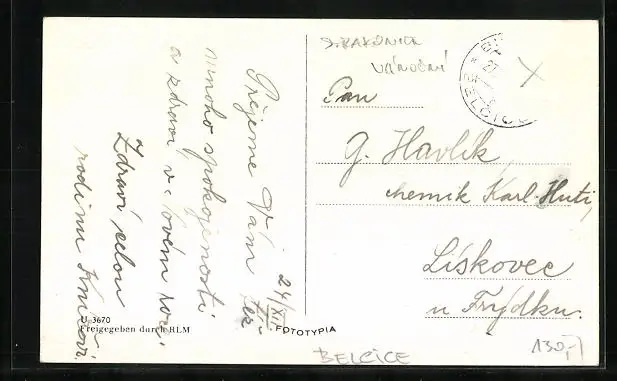 Přejeme Vám
mnoho spokojenosti
a zdraví v novém roce.
Zdraví celou
rodinu
24/XII
U 3670
Freigegeben durch RLM
FOTOTYPIA
J. BAKOVNICK
VÁNOČNÍ
27
BELČICE
X
Pan
G. Havlík,
chemik Karl. Huti,
Lískovec
u Frýdku.
BELCICE
130,-